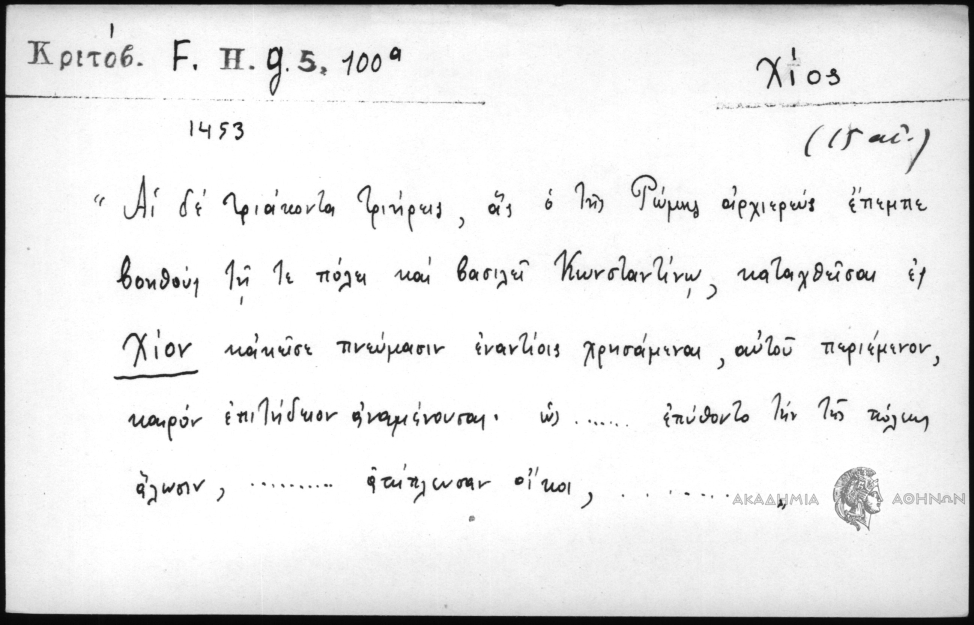 Κριτόβ. F. H. g. 5. 100ª
Χίος
1453
(15 αἰ.)
“Αἱ δέ τριάκοντα τριήρεις, ἅς ὁ τῆς Ρώμης ἀρχιερεύς ἔπεμπε
βοηθούς τῇ τε πόλει καί βασιλεῖ Κωνσταντίνῳ, καταχθεῖσαι ἐς
Χίον κἀκεῖσε πνεύμασιν ἐναντίοις χρησάμεναι, αὐτοῦ περιέμενον,
καιρόν ἐπιτήδειον ἀναμένουσαι· ὡς ....... ἐπύθοντο τήν τῆς πόλεως
ἅλωσιν, .......... ἀπέπλευσαν οἴκοι, . . . . . . . „
ΑΚΑΔΗΜΙΑ ΑΘΗΝΩΝ